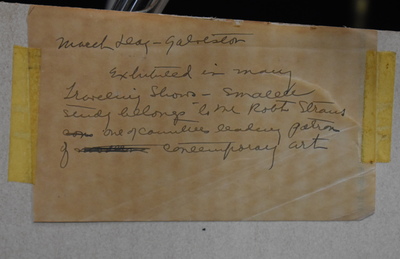 March Day - Galveston
Exhibited in many
Traveling Shows - Smaller
study belongs to Mr Robt Straus
one of countries leading patron
of contemporary art